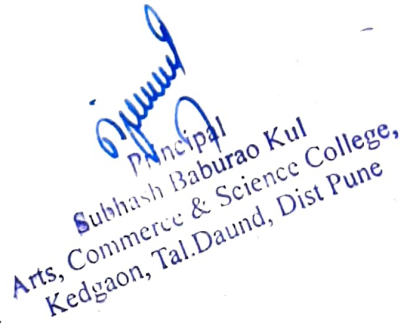 Principal
Subhash Baburao Kul
Arts, Commerce & Science College,
Kedgaon, Tal.Daund, Dist Pune